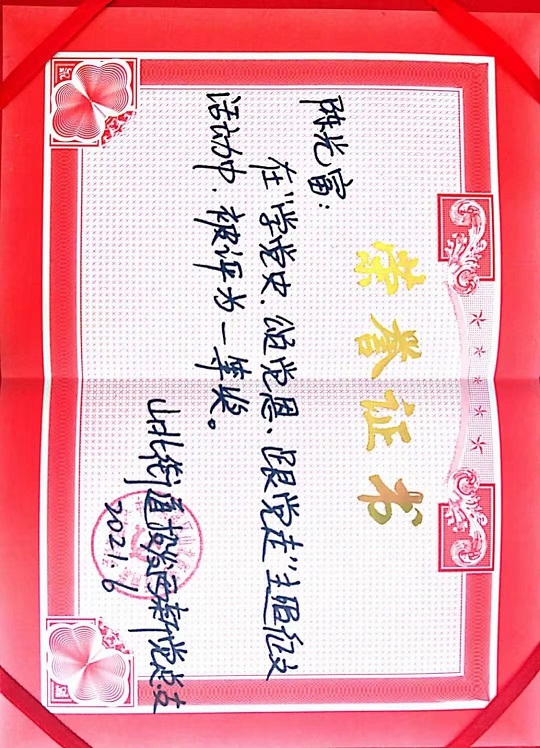 荣誉证书
陈光富：
在“学党史、颂党恩、跟党走”主题征文
活动中，被评为一等奖。
山北街道 两新党总支
2021.6